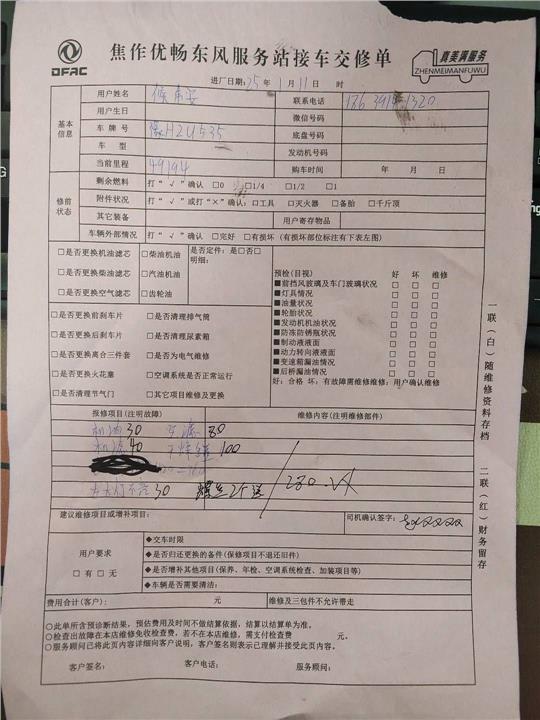 DFAC
焦作优畅东风服务站接车交修单
真美满服务
ZHENMEIMANFUWU
进厂日期:25年1月11日 时
基本信息
用户姓名
联系电话
用户生日 微信号码
车牌号 豫H2U535 底盘号码
车型 发动机号码
当前里程 49194 购车时间 年 月 日
修前状态
剩余燃料 打“√”确认 □0 □1/4 □1/2 □1
附件状况 打“√”或打“×”确认:□工具 □灭火器 □备胎 □千斤顶
其它装备 用户寄存物品
车辆外部情况 打“√”确认 □完好 □有损坏(有损坏部位标注有下表左图)
□是否更换机油滤芯 □柴油机油 是否定件:是□否□
明细:
□是否更换柴油滤芯 □汽油机油
□是否更换空气滤芯 □齿轮油
预检(目视) 好 坏 维修
■前挡风玻璃及车门玻璃状况 □ □ □
■灯具情况 □ □ □
■油量状况 □ □ □
■轮胎状况 □ □ □
■发动机机油情况 □ □ □
■防冻防锈瓶状况 □ □ □
■制动液液面 □ □ □
■动力转向液液面 □ □ □
■变速箱漏油情况 □ □ □
■后桥漏油情况 □ □ □
好:合格 坏:有故障需维修维修:用户确认维修
□是否更换前刹车片 □是否清理排气筒
□是否更换后刹车片 □是否清理尿素箱
□是否更换离合三件套 □是否为电气维修
□是否更换火花塞 □空调系统是否正常运行
□是否清理节气门 □其它项目维修及更换
报修项目(注明故障) 维修内容(注明维修部件)
机油30 80
机滤40 100
大灯不亮30 2个 280
建议维修项目或增补项目: 司机确认签字:
用户要求
□有□无
◆交车时限
◆是否归还更换的备件(保修项目不退还旧件)
◆是否增补其他项目(保养、年检、空调系统检查、加装项目等)
◆车辆是否需要清洁:
费用合计(客户): 元 维修及三包件不允许带走
○此单所含预诊断结果,预估费用及时间不做结算依据,结算以结算单为准。
○检查出故障在本店维修免收检查费,若不在本店维修,需支付检查费 元。
○服务顾问已将此页内容详细向客户说明,客户签名则表示已理解并接受此页内容。
客户签名: 客户电话: 服务顾问:
一联(白)随维修资料存档
二联(红)财务留存